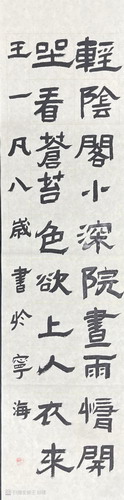 輕陰閣小深院晝雨慵開
坐看蒼苔色欲上人衣來
王一凡八歲書於寧海